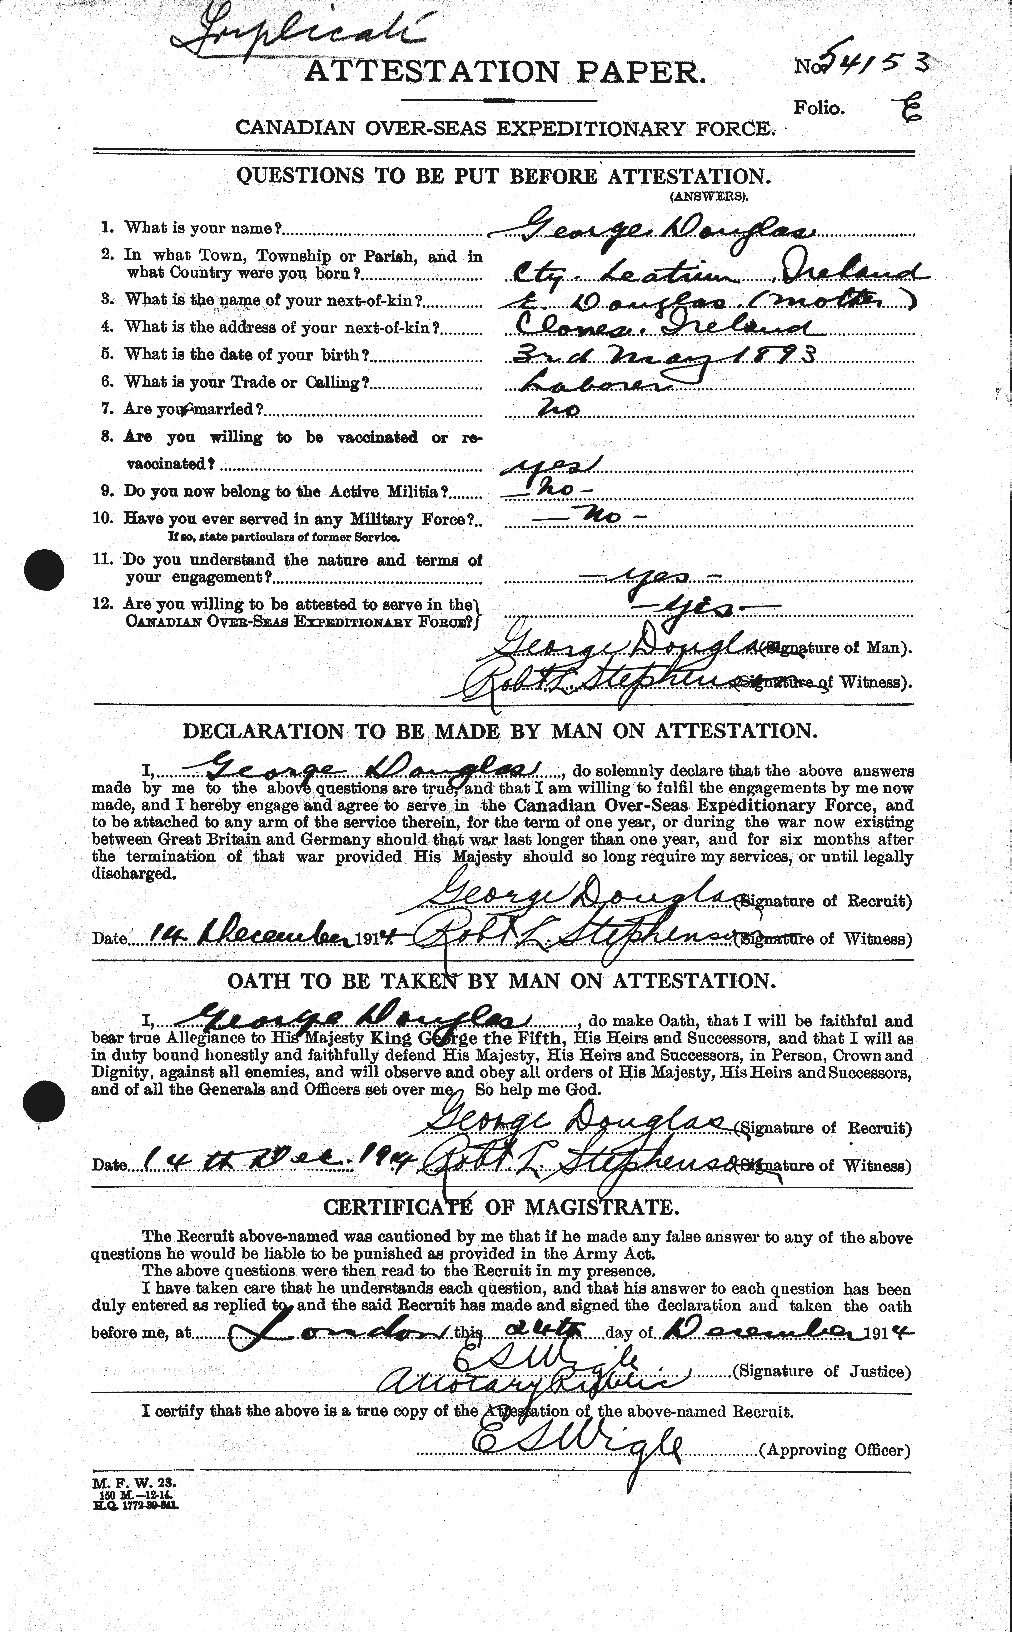 Triplicate
ATTESTATION PAPER.
No. 54153
Folio. E
CANADIAN OVER-SEAS EXPEDITIONARY FORCE.
QUESTIONS TO BE PUT BEFORE ATTESTATION.
(ANSWERS).
1. What is your name? George Douglas
2. In what Town, Township or Parish, and in
what Country were you born? Cty. Leatrim Ireland
3. What is the name of your next-of-kin? E. Douglas (mother)
4. What is the address of your next-of-kin? Clones. Ireland
5. What is the date of your birth? 3rd May 1893
6. What is your Trade or Calling? Laborer
7. Are you married? No
8. Are you willing to be vaccinated or re-
vaccinated? yes
9. Do you now belong to the Active Militia? —No—
10. Have you ever served in any Military Force? —No—
If so, state particulars of former Service.
11. Do you understand the nature and terms of
your engagement? —yes—
12. Are you willing to be attested to serve in the
CANADIAN OVER-SEAS EXPEDITIONARY FORCE? —yes—
George Douglas (Signature of Man).
Robt L. Stephenson (Signature of Witness).
DECLARATION TO BE MADE BY MAN ON ATTESTATION.
I, George Douglas, do solemnly declare that the above answers
made by me to the above questions are true, and that I am willing to fulfil the engagements by me now
made, and I hereby engage and agree to serve in the Canadian Over-Seas Expeditionary Force, and
to be attached to any arm of the service therein, for the term of one year, or during the war now existing
between Great Britain and Germany should that war last longer than one year, and for six months after
the termination of that war provided His Majesty should so long require my services, or until legally
discharged.
George Douglas (Signature of Recruit)
Date 14 December 1914 Robt L. Stephenson (Signature of Witness)
OATH TO BE TAKEN BY MAN ON ATTESTATION.
I, George Douglas, do make Oath, that I will be faithful and
bear true Allegiance to His Majesty King George the Fifth, His Heirs and Successors, and that I will as
in duty bound honestly and faithfully defend His Majesty, His Heirs and Successors, in Person, Crown and
Dignity, against all enemies, and will observe and obey all orders of His Majesty, His Heirs and Successors,
and of all the Generals and Officers set over me. So help me God.
George Douglas (Signature of Recruit)
Date 14th Dec. 1914 Robt L. Stephenson (Signature of Witness)
CERTIFICATE OF MAGISTRATE.
The Recruit above-named was cautioned by me that if he made any false answer to any of the above
questions he would be liable to be punished as provided in the Army Act.
The above questions were then read to the Recruit in my presence.
I have taken care that he understands each question, and that his answer to each question has been
duly entered as replied to, and the said Recruit has made and signed the declaration and taken the oath
before me, at London this 24th day of December 1914
E S Wigle (Signature of Justice)
A Notary Public
I certify that the above is a true copy of the Attestation of the above-named Recruit.
E S Wigle (Approving Officer)
M. F. W. 23.
150 M.—12-14.
H.Q. 1772-39-841.